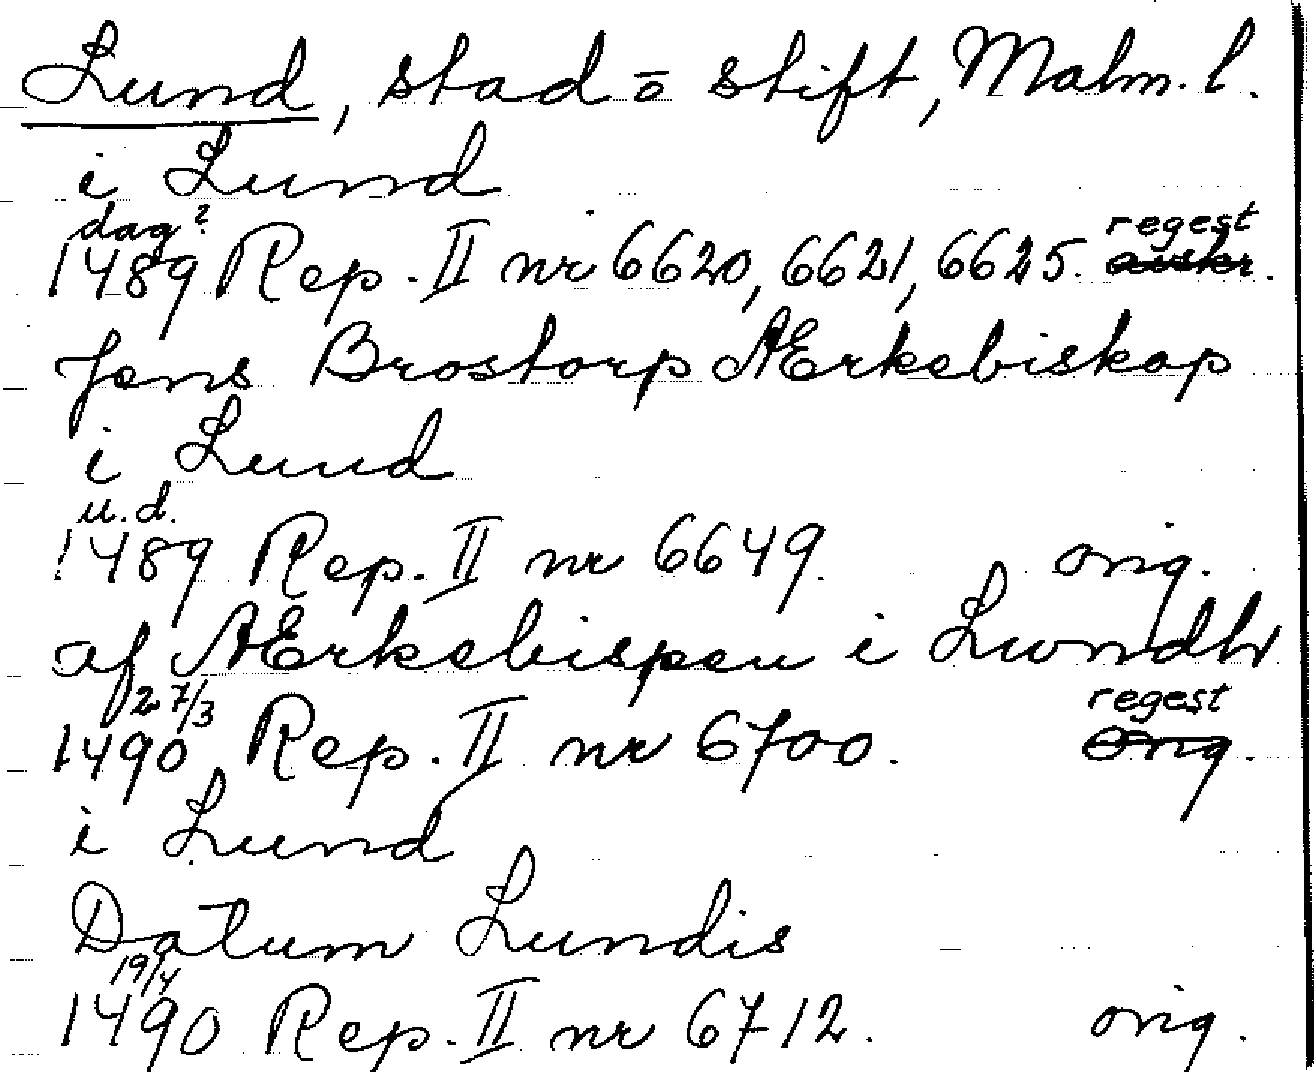 Lund, stad o stift, Malm. l.
i Lund
dag?
1489 Rep. II nr 6620, 6621, 6625. regest avskr.
Jens Brostorp AErkebiskop
i Lund
u.d.
1489 Rep. II nr 6649. orig.
af AErkebispen i Lwndh
27/3
1490 Rep. II nr 6700. regest orig.
i Lund
Datum Lundis
19/4
1490 Rep. II nr 6712. orig.